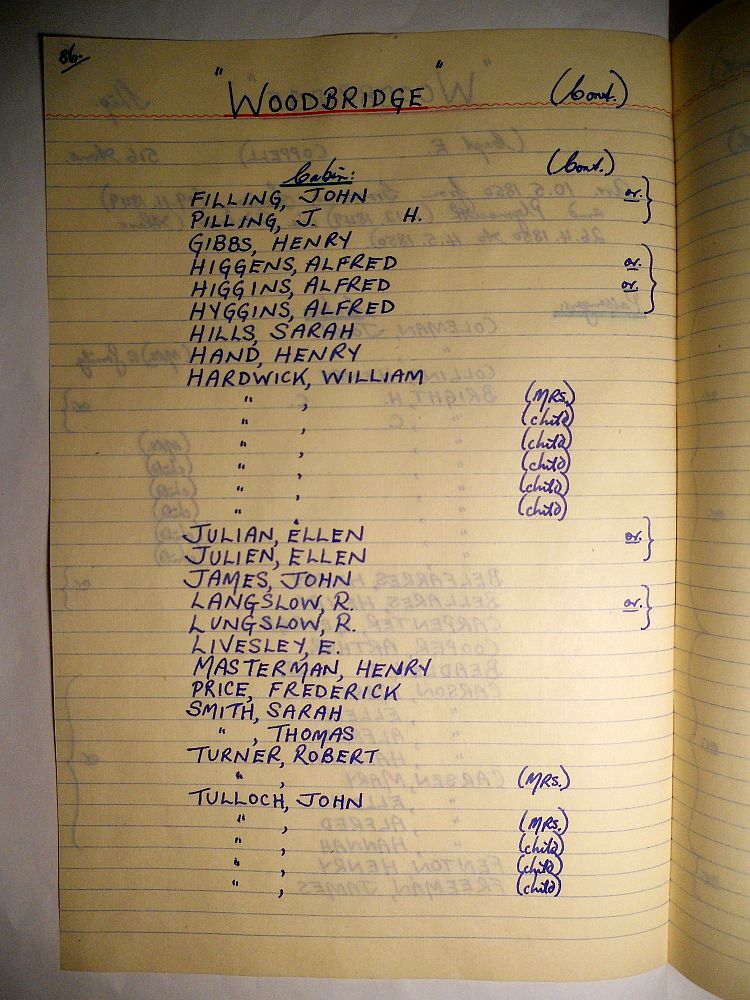 86.
"WOODBRIDGE" (Cont.)
Cabin: (Cont.)
FILLING, JOHN or. }
PILLING, J. H.
GIBBS, HENRY
HIGGENS, ALFRED or. }
HIGGINS, ALFRED or.
HYGGINS, ALFRED
HILLS, SARAH
HAND, HENRY
HARDWICK, WILLIAM
" , (MRS.)
" , (child)
" , (child)
" , (child)
" , (child)
" , (child)
JULIAN, ELLEN or. }
JULIEN, ELLEN
JAMES, JOHN
LANGSLOW, R. or. }
LUNGSLOW, R.
LIVESLEY, E.
MASTERMAN, HENRY
PRICE, FREDERICK
SMITH, SARAH
" , THOMAS
TURNER, ROBERT
" , (MRS.)
TULLOCH, JOHN
" , (MRS.)
" , (child)
" , (child)
" , (child)